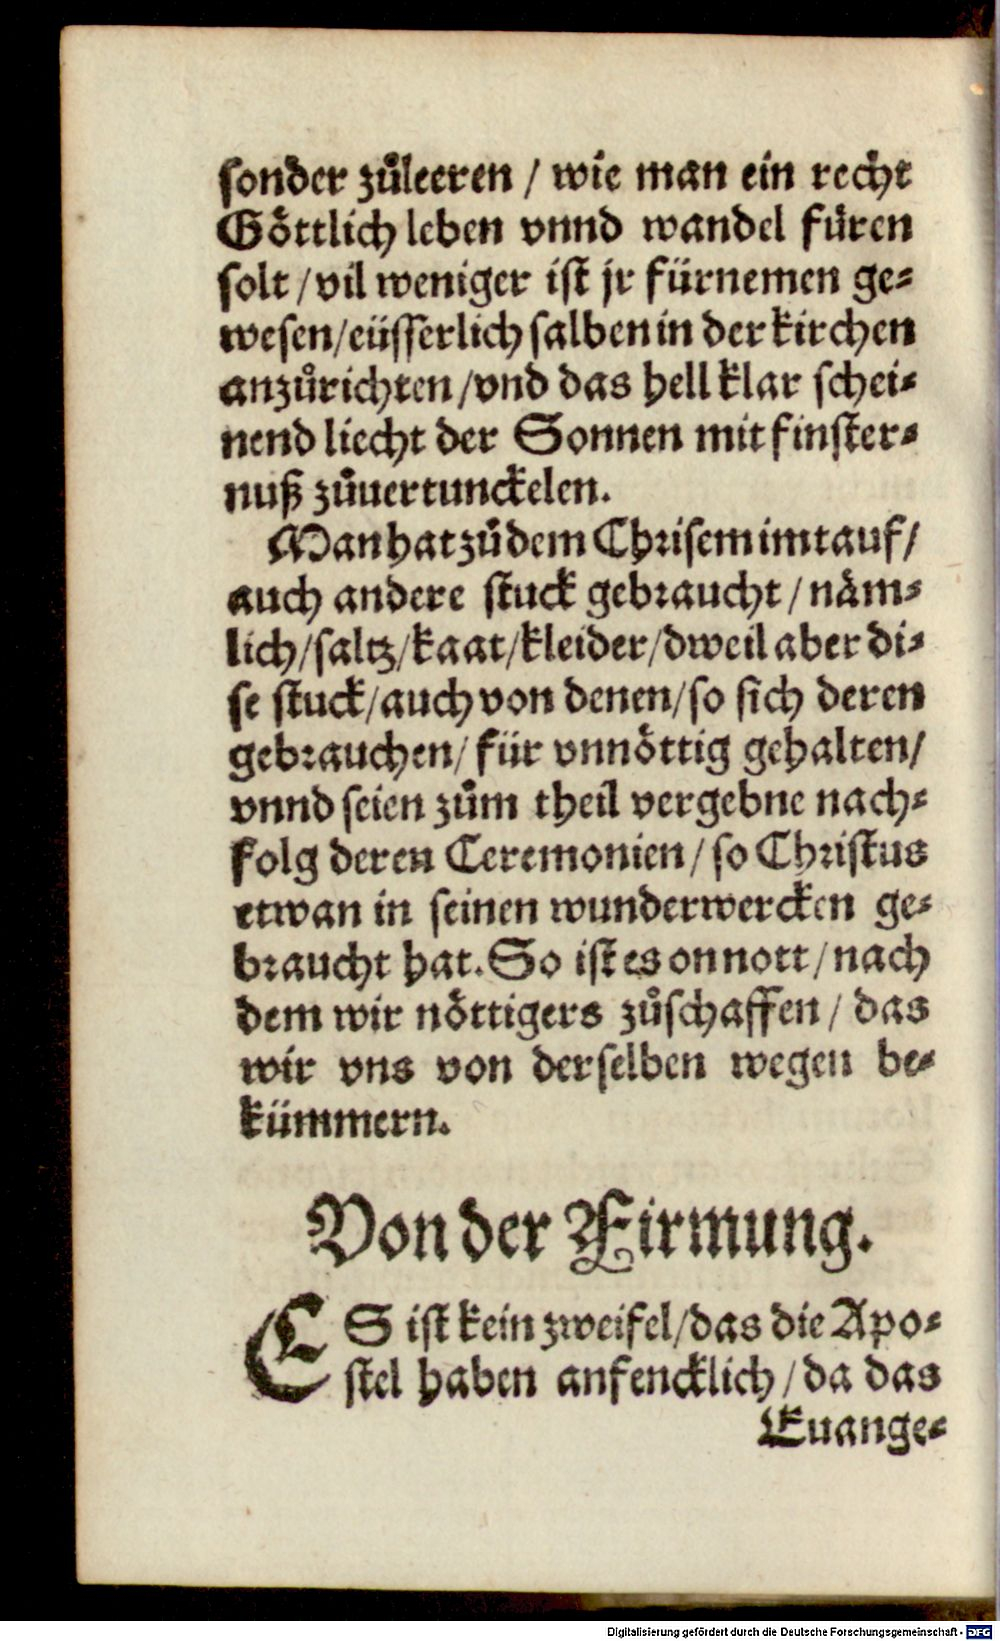 sonder zůleeren / wie man ein recht
Göttlich leben vnnd wandel füren
solt / vil weniger ist jr fürnemen ge-
wesen / eüsserlich salben in der kirchen
anzůrichten / vnd das hell klar schei-
nend liecht der Sonnen mit finster-
nuß zůuertunckelen.
Man hat zů dem Chrisem im tauf /
auch andere stuck gebraucht / näm-
lich / saltz / kaat / kleider / dweil aber di-
se stuck / auch von denen / so sich deren
gebrauchen / für vnnöttig gehalten /
vnnd seien zům theil vergebne nach-
folg deren Ceremonien / so Christus
etwan in seinen wunderwercken ge-
braucht hat. So ist es on nott / nach
dem wir nöttigers zůschaffen / das
wir vns von derselben wegen be-
kümmern.
Von der Firmung.
ES ist kein zweifel / das die Apo-
stel haben anfencklich / da das
Euange-
Digitalisierung gefördert durch die Deutsche Forschungsgemeinschaft - DFG